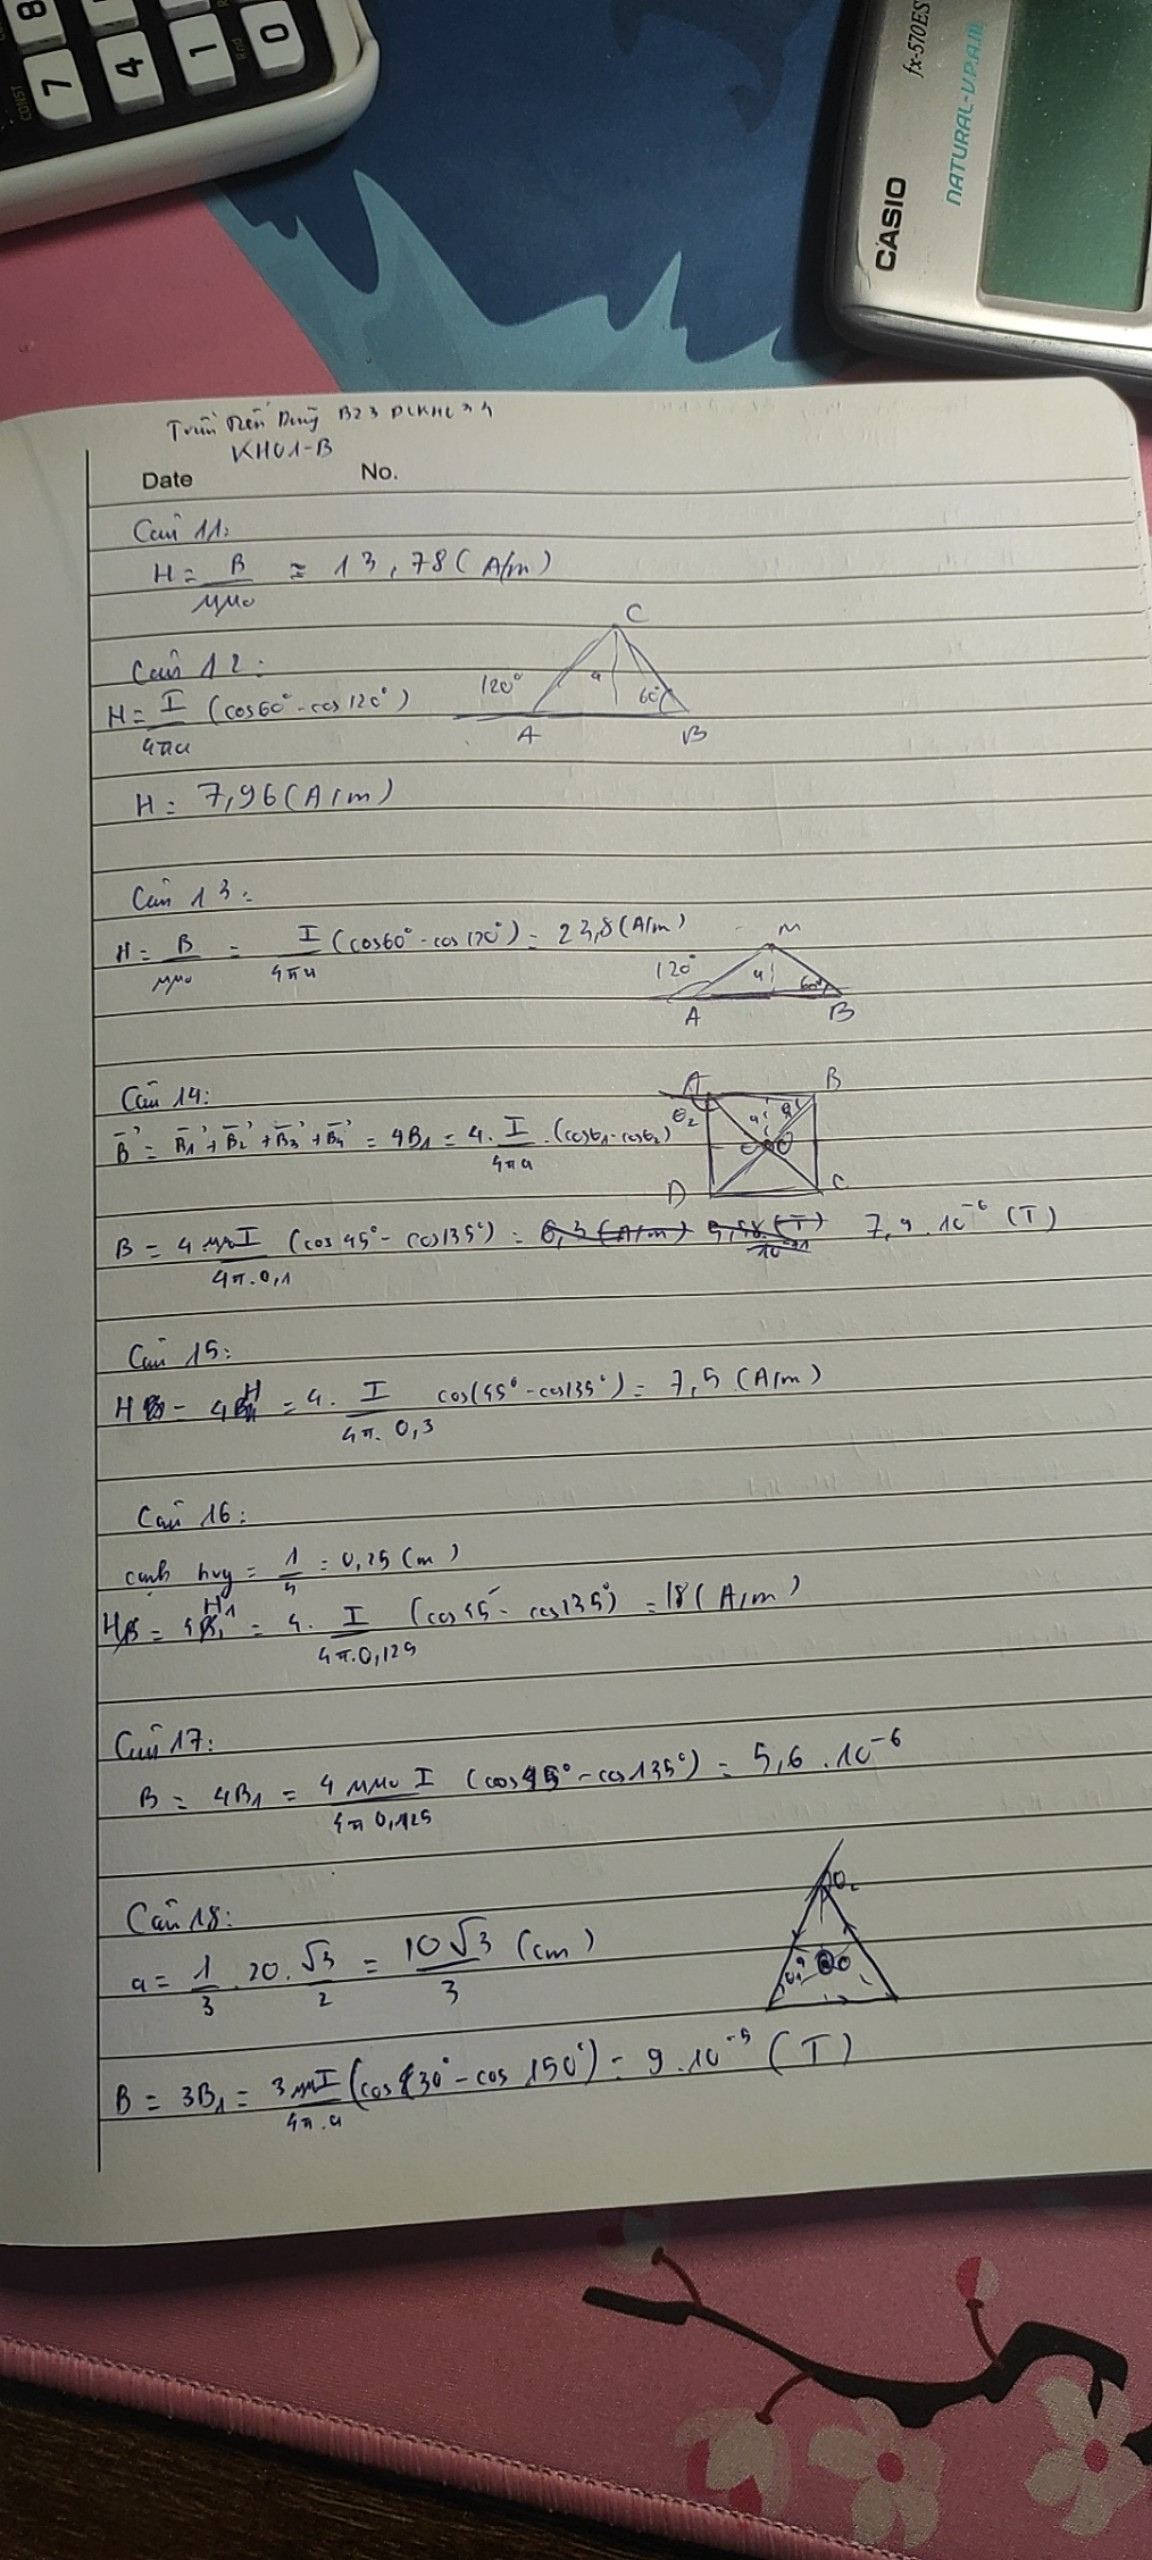 8
7 4 1 0
CONST
Rnd
fx-570ES
NATURAL-V.P.A.M.
CASIO
B23
KH01-B
Date No.
Câu 11:
H = B/μμ₀ = 13,78 (A/m)
C
Câu 12:
120° a 60°
H = I/4πa (cos60° - cos120°)
A B
H = 7,96 (A/m)
Câu 13:
H = B/μμ₀ = I/4πa (cos60° - cos120°) = 23,8 (A/m)
M
120° a 60°
A B
Câu 14:
A B
B⃗ = B⃗₁ + B⃗₂ + B⃗₃ + B⃗₄ = 4B₁ = 4. I/4πa . (cosθ₁ - cosθ₂)
θ₂ a
D C
B = 4 μμ₀I/4π.0,1 (cos 45° - cos135°) = 7,9 . 10⁻⁶ (T)
Câu 15:
H = 4H = 4. I/4π. 0,3 cos(45° - cos135°) = 7,5 (A/m)
Câu 16:
= 1/4 = 0,25 (m)
H = 4H₁ = 4. I/4π.0,125 (cos45° - cos135°) = 18 (A/m)
Câu 17:
B = 4B₁ = 4 μμ₀ I/4π 0,125 (cos45° - cos135°) = 5,6 . 10⁻⁶
Câu 18:
θ₂
a = 1/3 . 20 . √3/2 = 10√3/3 (cm)
θ₁ a O
B = 3B₁ = 3μμ₀I/4π.a (cos 30° - cos 150°) = 9 . 10⁻⁵ (T)